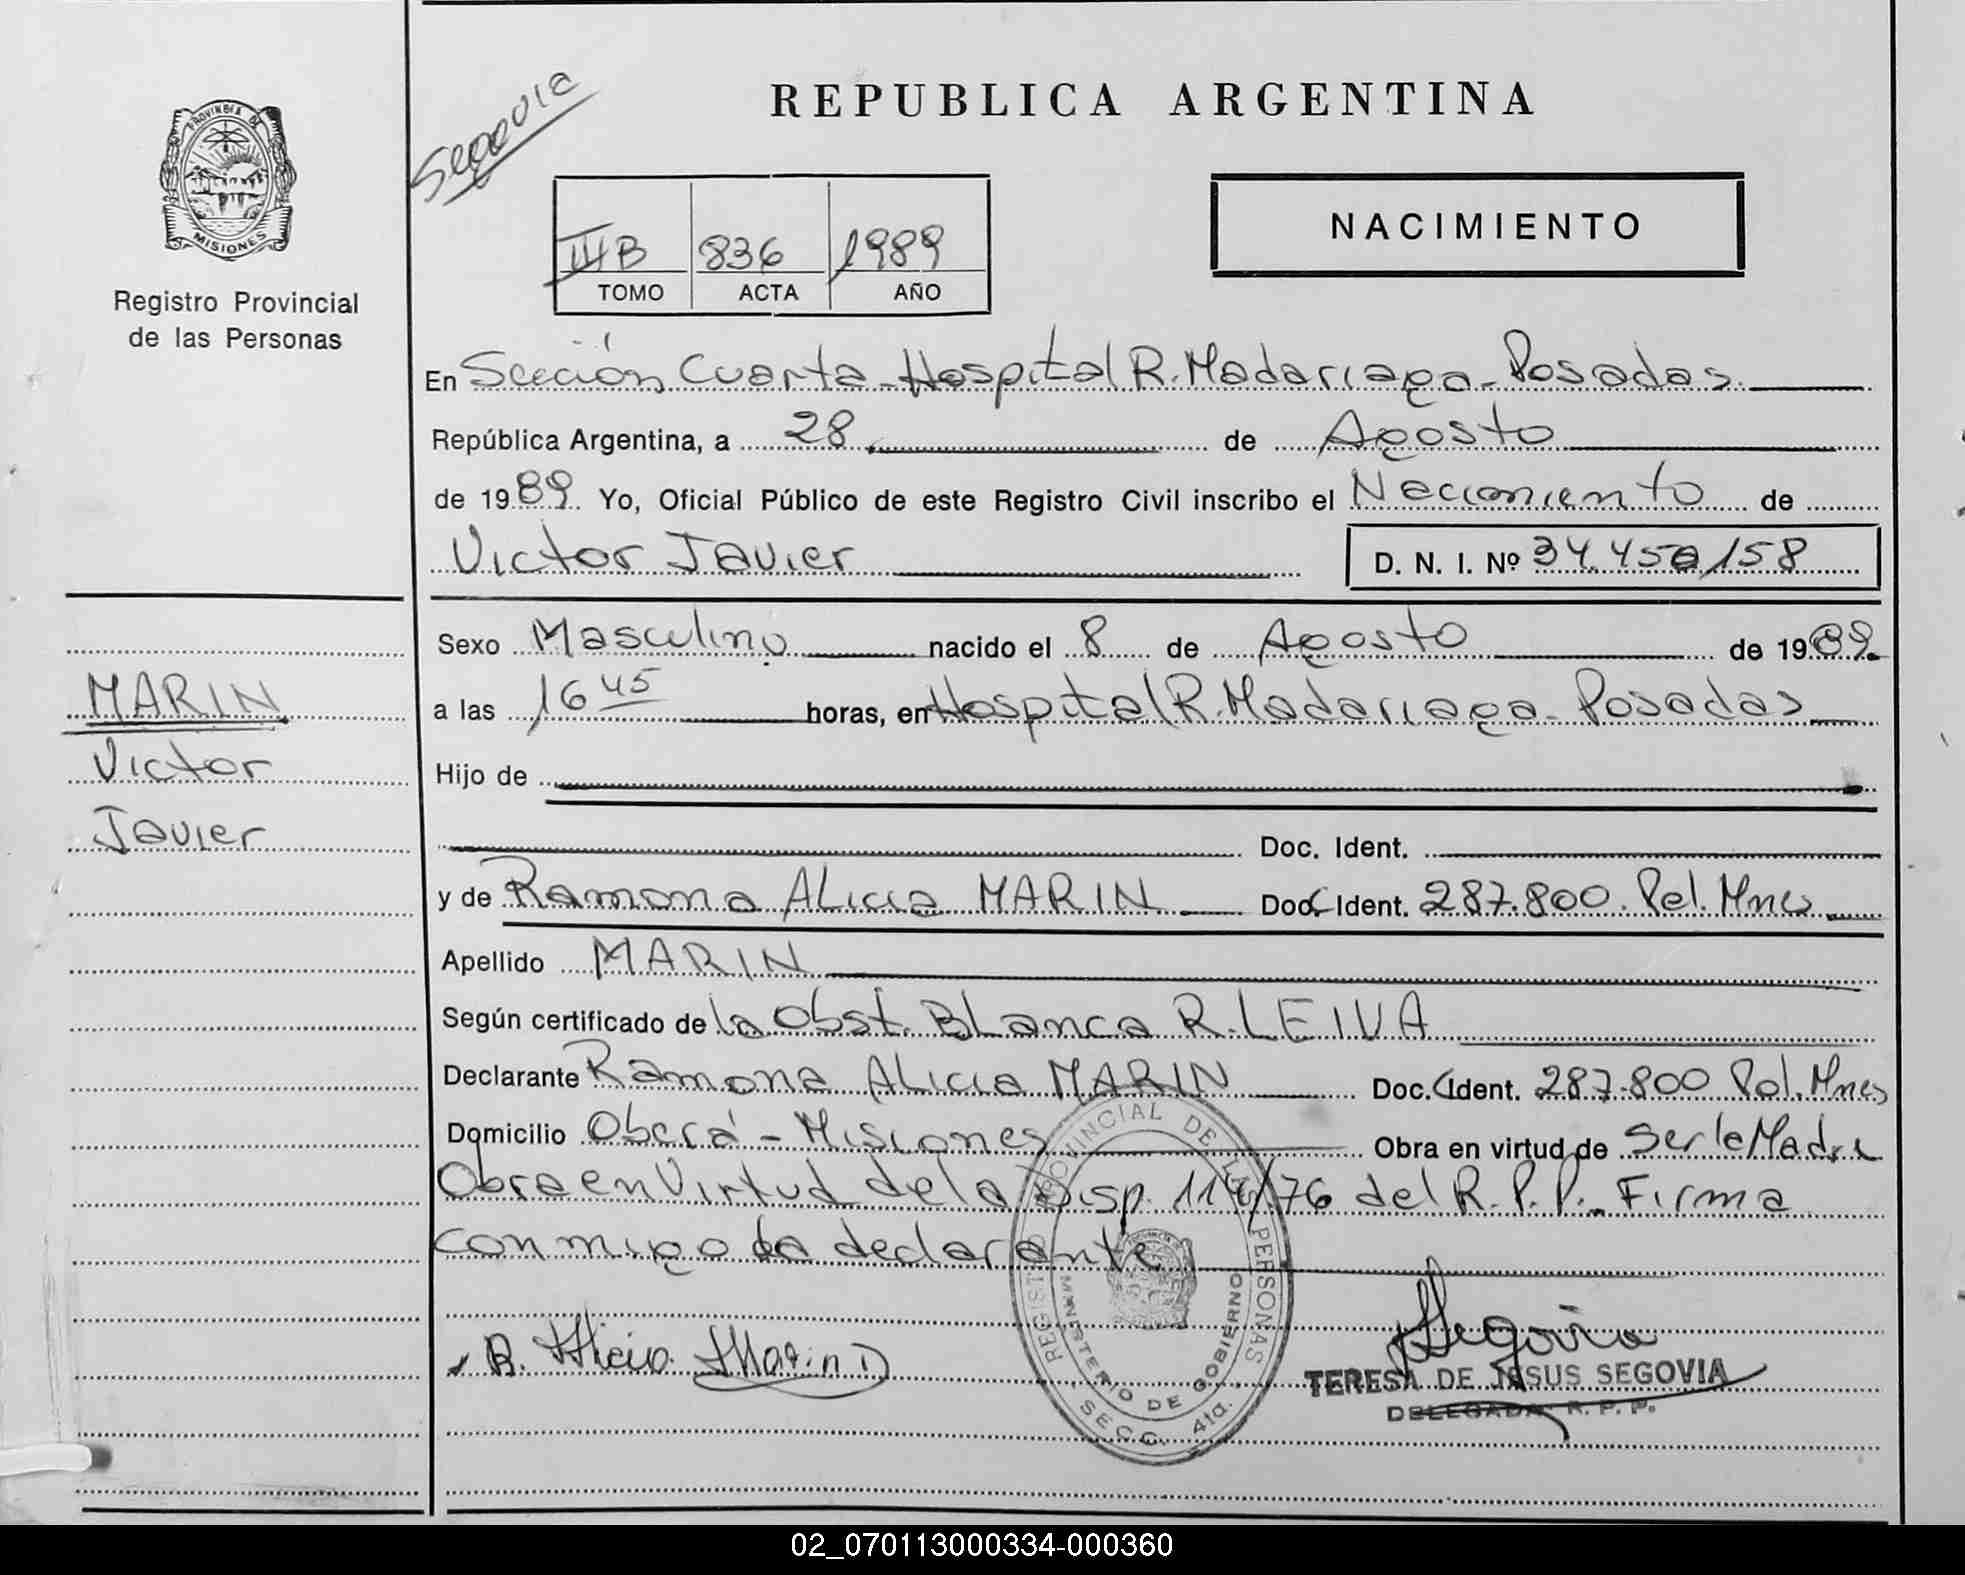 PROVINCIA DE
MISIONES
Registro Provincial
de las Personas
MARIN
Victor
Javier
Segovia
REPUBLICA ARGENTINA
NACIMIENTO
III B 836 1989
TOMO ACTA AÑO
En Sección Cuarta - Hospital R. Madariaga - Posadas
República Argentina, a 28 de Agosto
de 1989. Yo, Oficial Público de este Registro Civil inscribo el Nacimiento de
Victor Javier D. N. I. Nº 34.450.158
Sexo Masculino nacido el 8 de Agosto de 1989.
a las 16 45 horas, en Hospital R. Madariaga - Posadas
Hijo de
Doc. Ident.
y de Ramona ALicia MARIN Doc. Ident. 287.800. Pol. Mnes
Apellido MARIN
Según certificado de la Obst. BLanca R. LEIVA
Declarante Ramona ALicia MARIN Doc. Ident. 287.800 Pol. Mnes
Domicilio Oberá - Misiones Obra en virtud de ser la Madre
Obra en Virtud de la Disp. 117/76 del R. P. P. - Firma
conmigo la declarante
R. Alicia Marin
REGISTRO PROVINCIAL DE LAS PERSONAS
MINISTERIO DE GOBIERNO
SECC. 4ta.
Segovia
TERESA DE JESUS SEGOVIA
DELEGADA R. P. P.
02_070113000334-000360